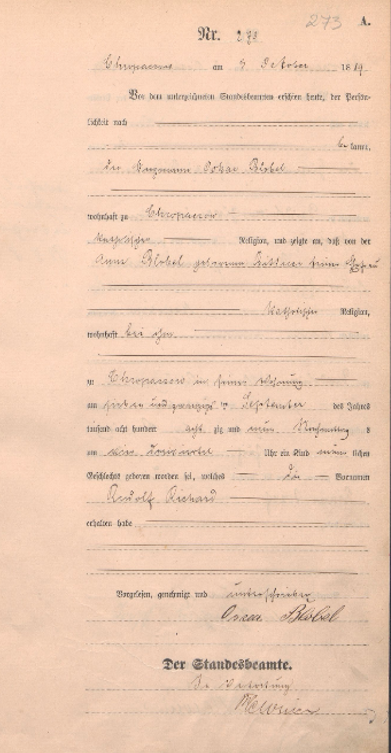 273 A.
Nr. 273
Chropaczow am 4 October 1889
Vor dem unterzeichneten Standesbeamten erschien heute, der Persön-
lichkeit nach
be kannt,
der Oskar Blobel
wohnhaft zu Chropaczow
katholischer Religion, und zeigte an, daß von der
Anna Blobel geborenen seiner Ehefrau
katholischer Religion,
wohnhaft bei ihm
zu Chropaczow in seiner Wohnung
am sieben und zwanzigsten September des Jahres
tausend acht hundert acht zig und neun Nachmittags
um Uhr ein Kind männlichen
Geschlechts geboren worden sei, welches die Vornamen
Rudolf Richard
erhalten habe
Vorgelesen, genehmigt und unterschrieben
Oscar Blobel
Der Standesbeamte.
In Vertretung